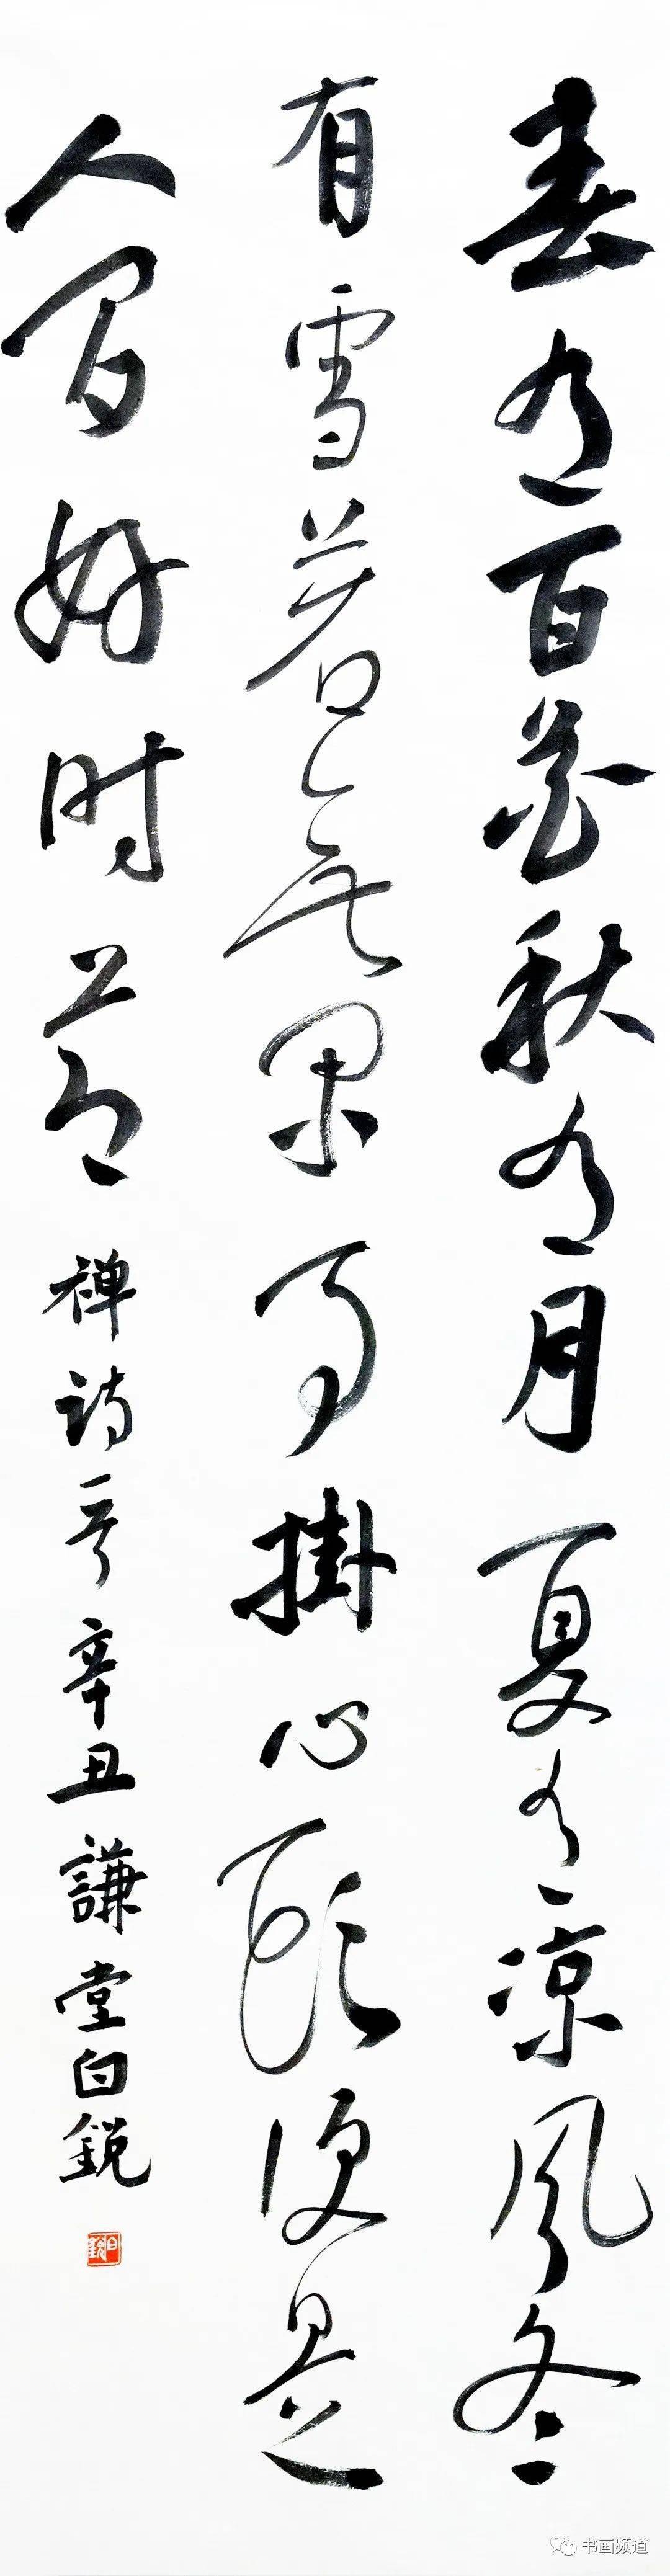 春有百花秋有月夏有凉风冬
有雪若无閑事掛心頭便是
人间好时节
禅詩一首 辛丑 謙堂白鋭
白鋭
书画频道